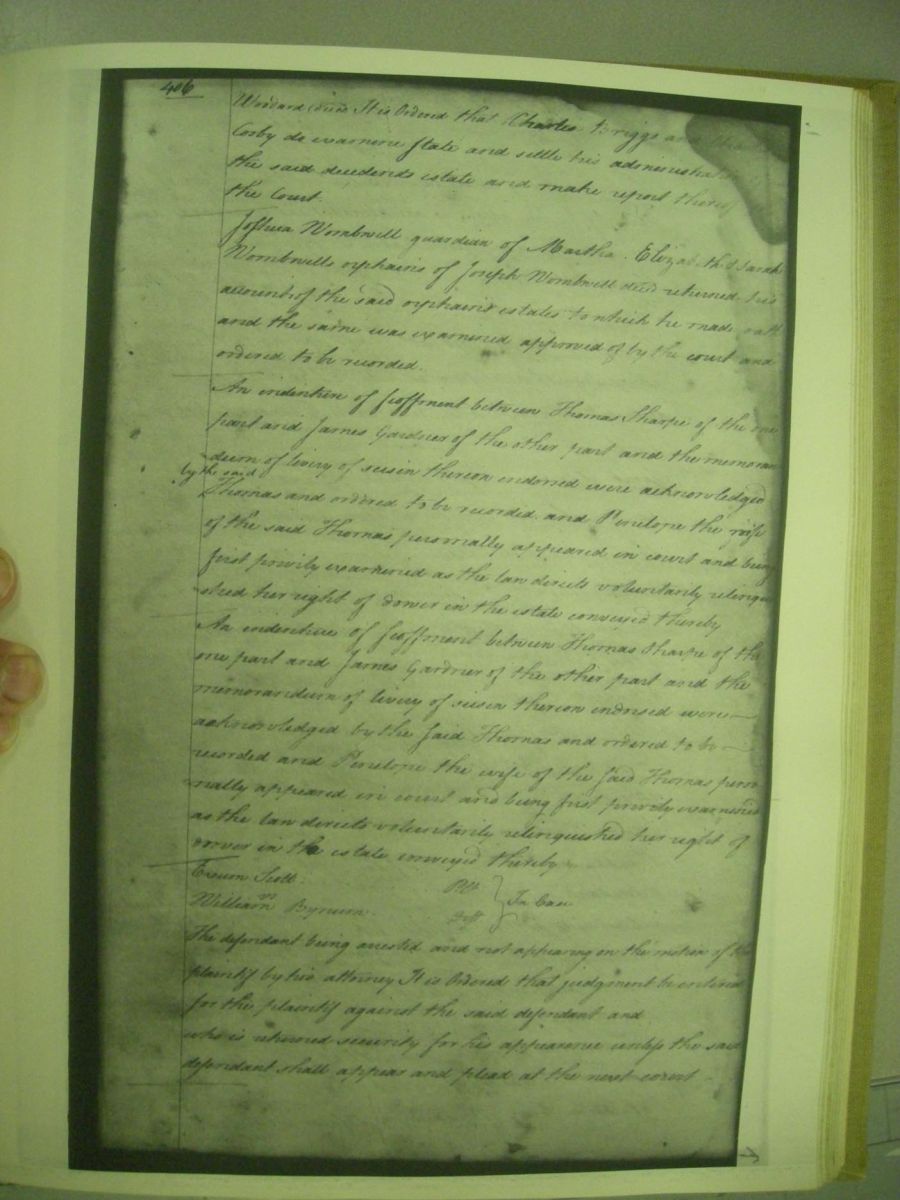 406
Woodard decd It is Ordered that Charles Briggs and
Corby do examine state and settle his administrat
the said decedends estate and make report thereof
the Court.
Joshua Wombwell guardian of Martha, Elizabeth & Sarah
Wombwells orphans of Joseph Wombwell decd returned his
account of the said orphans estates to which he made oath
and the same was examined approved of by the court and
ordered to be recorded.
An indenture of feoffment between Thomas Tharpe of the one
part and James Gardner of the other part and the memoran
dum of livery of seisin thereon endorsed were acknowledged
by the said
Thomas and ordered to be recorded. and Penelope the wife
of the said Thomas personally appeared in court and being
first privily examined as the law directs voluntarily relinqui
shed her right of dower in the estate conveyed thereby
An indenture of feoffment between Thomas Tharpe of the
one part and James Gardner of the other part and the
memorandum of livery of seisin thereon endorsed were
acknowledged by the said Thomas and ordered to be
recorded and Penelope the wife of the said Thomas perso
nally appeared in court and being first privily examined
as the law directs voluntarily relinquished her right of
dower in the estate conveyed thereby
Exum Scott. Plt
William Byrum. Deft } In Case
The defendant being arrested and not appearing on the motion of the
plaintif by his attorney It is Ordered that judgment be entered
for the plaintif against the said defendant and
who is returned security for his appearence unless the said
defendant shall appear and plead at the next court